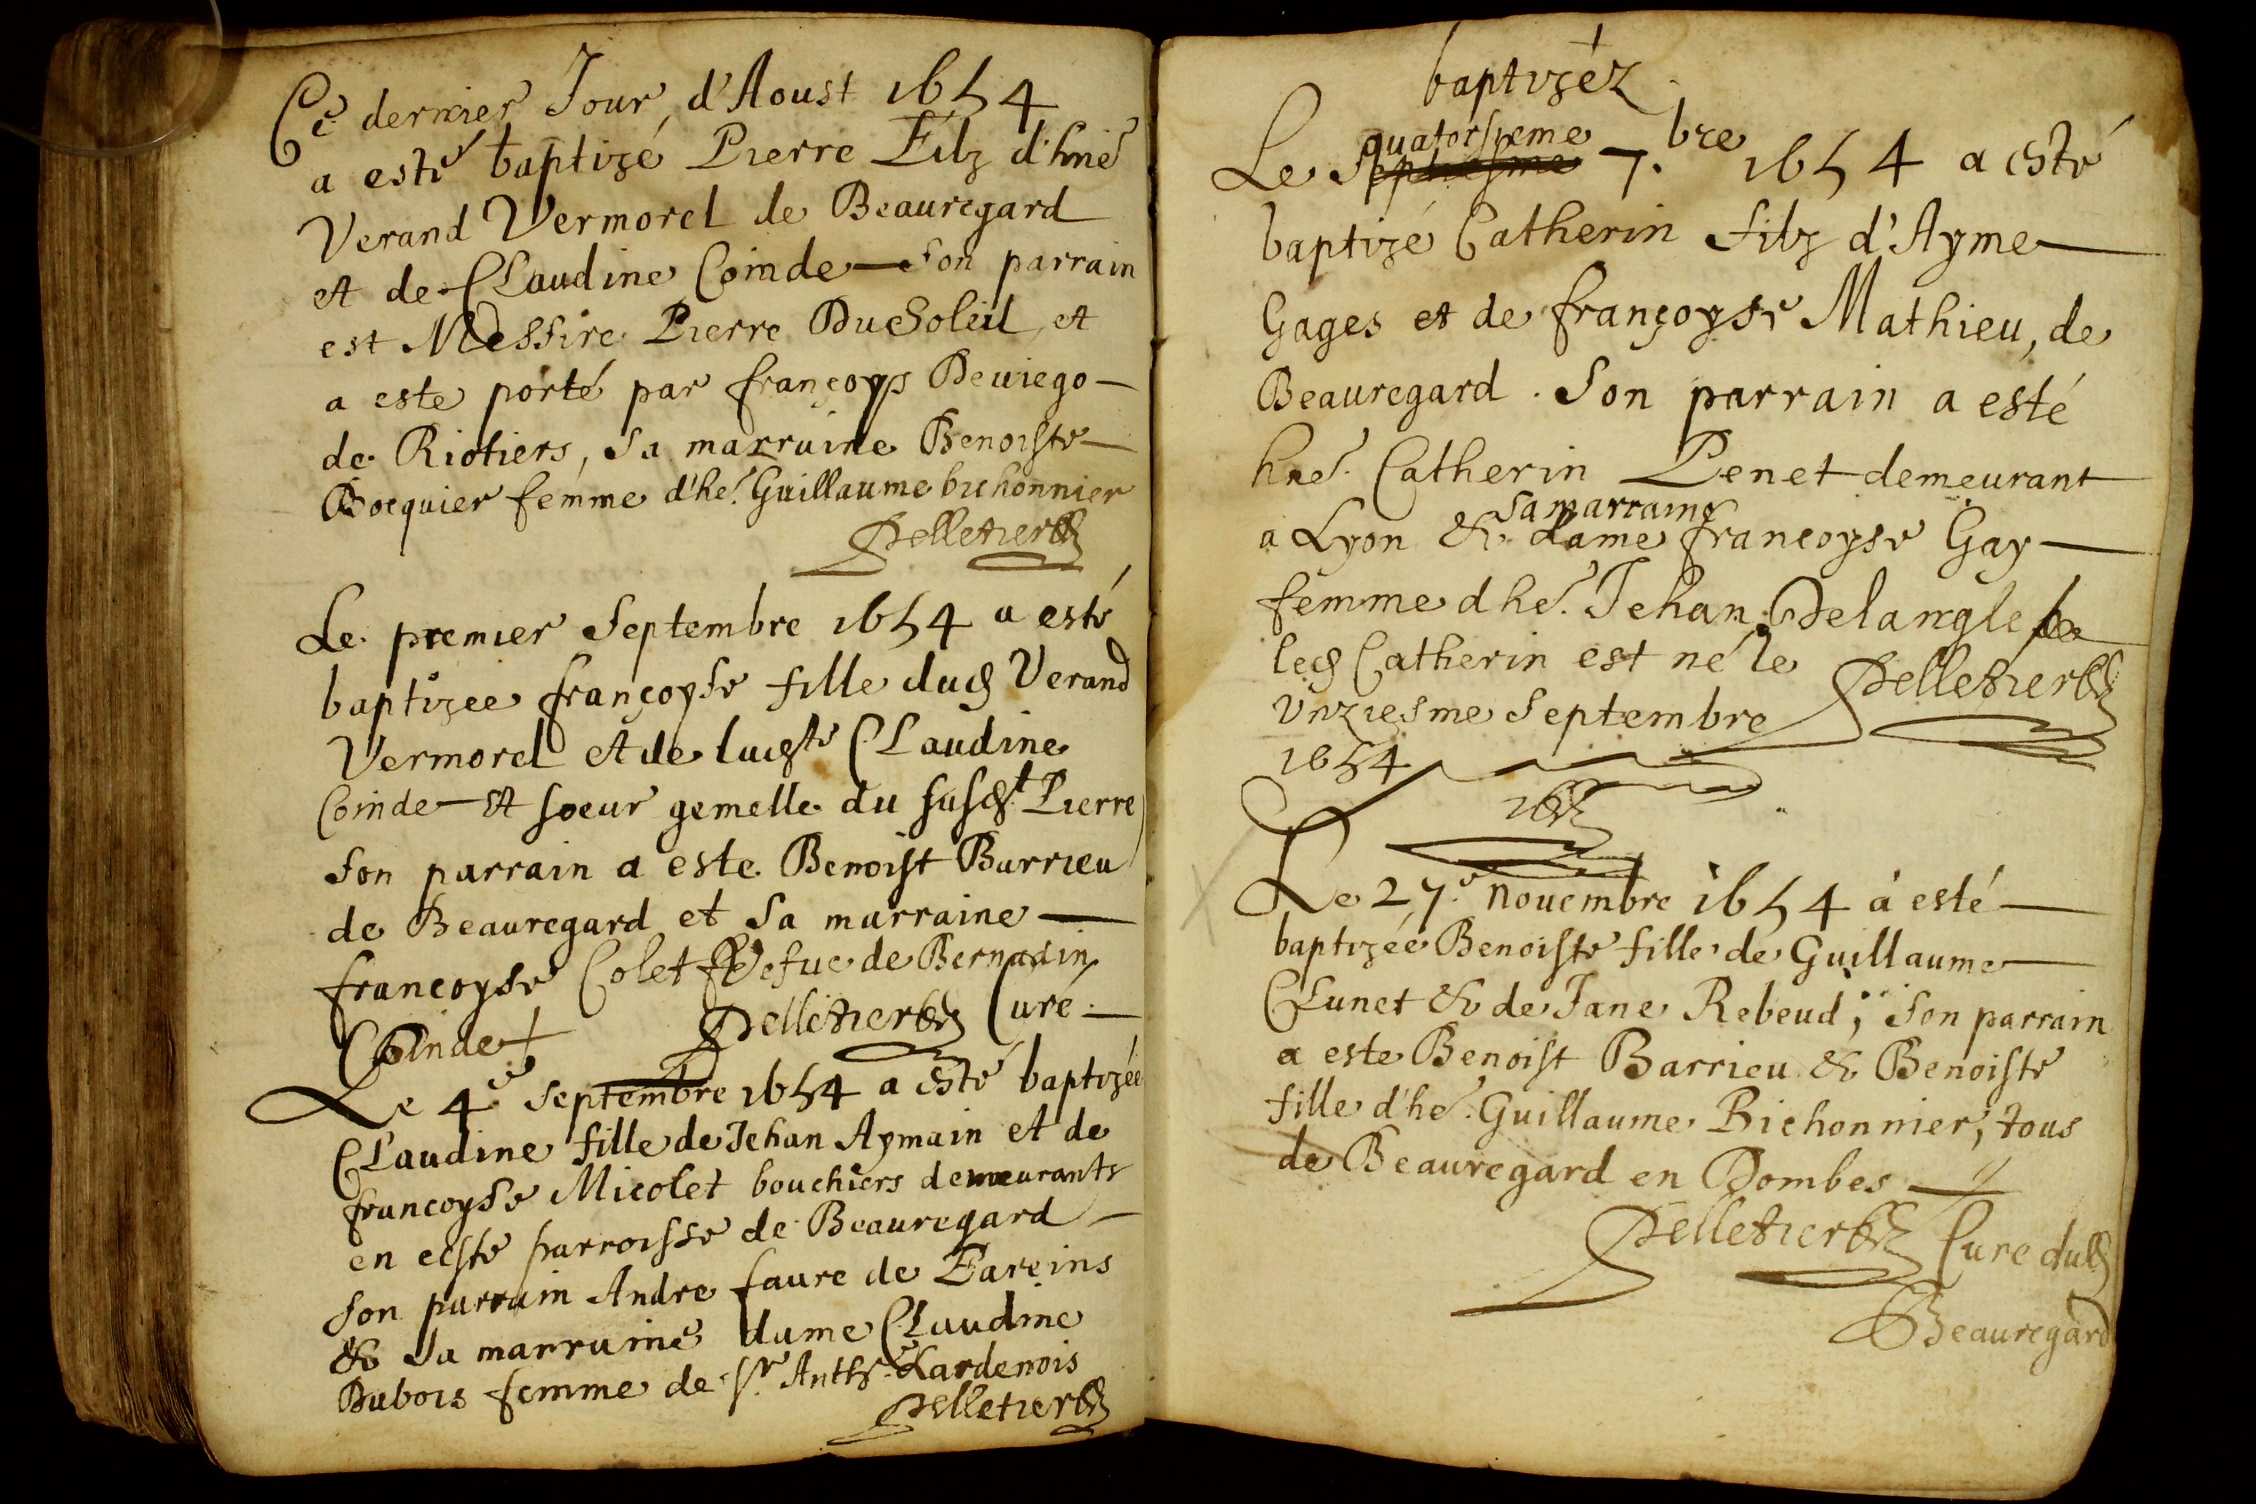 Ce dernier Jour, d'Aoust 1654
a esté baptizé Pierre Filz d'hne
Verand Vermorel de Beauregard
et de Claudine Coinde son parrain
est Messire Pierre DuSoleil, et
a este porté par françoys Deuiego
de Riotiers, Sa marraine Benoiste
Bocquier femme d'he. Guillaume bichonnier
Pelletier
Le premier Septembre 1654 a esté
baptizee françoyse fille dud Verand
Vermorel et de ladte Claudine
Coinde et soeur gemelle du susdt Pierre
Son parrain a este Benoist Barrieu
de Beauregard et Sa marraine
francoyse Colet Vefue de Bernadin
Coinde Pelletier Curé
Le 4e Septembre 1654 a esté baptizée
Claudine fille de Jehan Aymain et de
francoyse Micolet bouchiers demeurants
en ceste parroisse de Beauregard
Son parrain Andre faure de Fareins
& Sa marraine dame Claudine
Dubois femme de Sr Anthe Lardenois
Pelletier
baptizéz
quatorsieme
Le Septiesme 7.bre 1654 a esté
baptizé Catherin filz d'Ayme
Gages et de françoyse Mathieu, de
Beauregard. Son parrain a esté
hne. Catherin Penet demeurant
sa marraine
a Lyon & dame françoyse Gay
femme d he. Jehan Delangle
led Catherin est né le
Vnziesme Septembre Pelletier
1654
Le 27e. nouembre 1654 a esté
baptizée Benoiste fille de Guillaume
Clunet & de Jane Rebeud; Son parrain
a este Benoist Barrieu & Benoiste
fille d'he. Guillaume Bichonnier, tous
de Beauregard en Dombes
Pelletier Cure dud
Beauregard